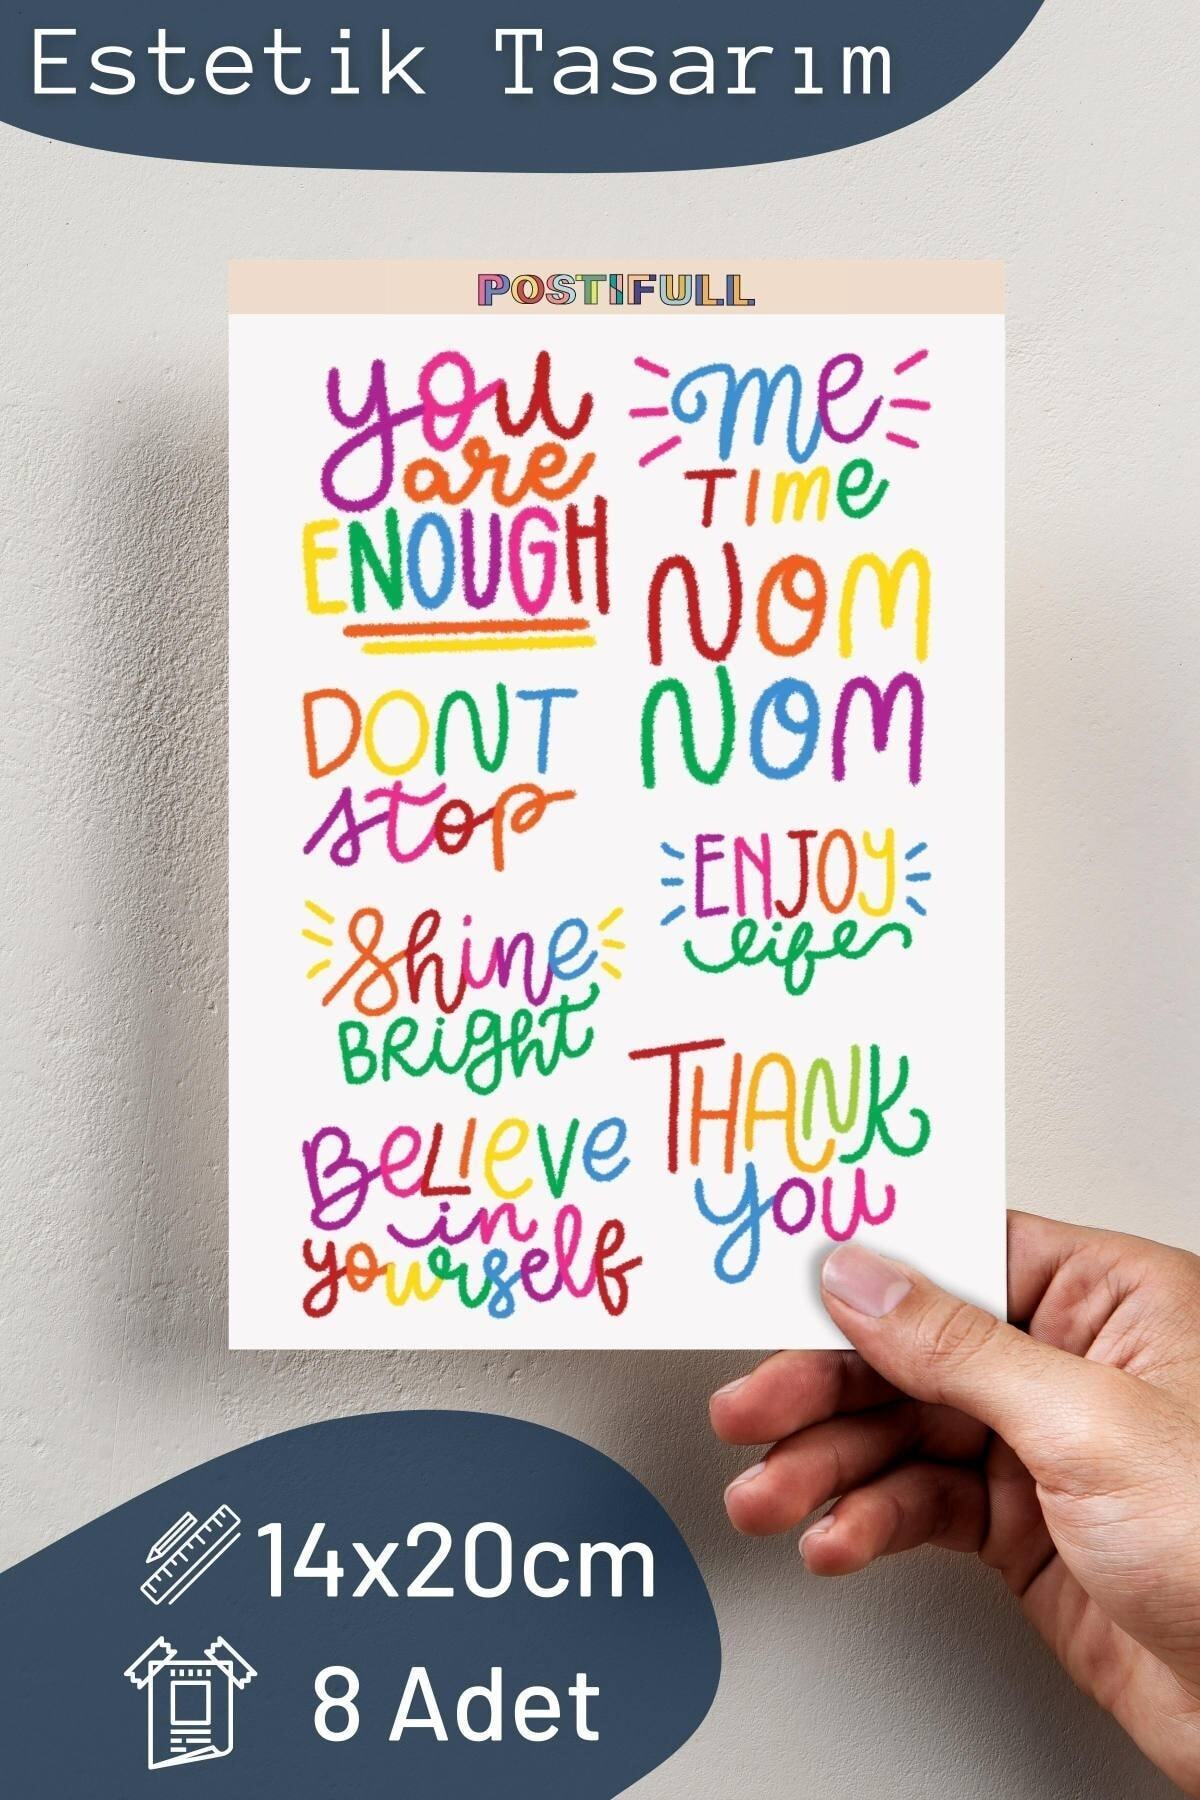 Estetik Tasarım
POSTIFULL
you
are
ENOUGH
me
TIme
NOM
NOM
DONT
stop
ENJOY
life
Shine
BRight
THANK
you
BeLIeve
in
yourself
14x20cm
8 Adet